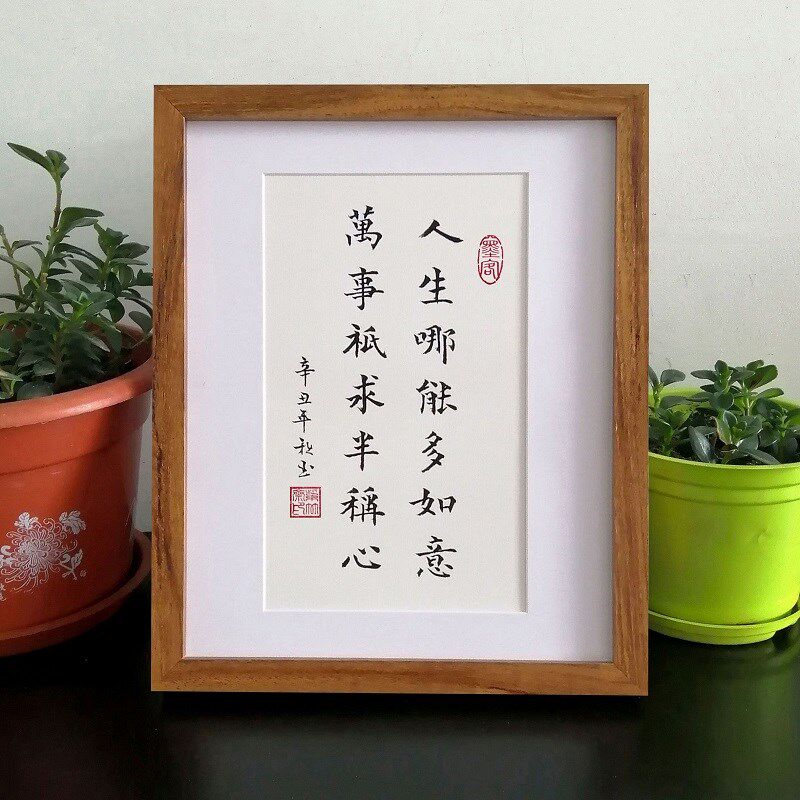 墨客
人生哪能多如意
萬事祇求半稱心
辛丑年秋书